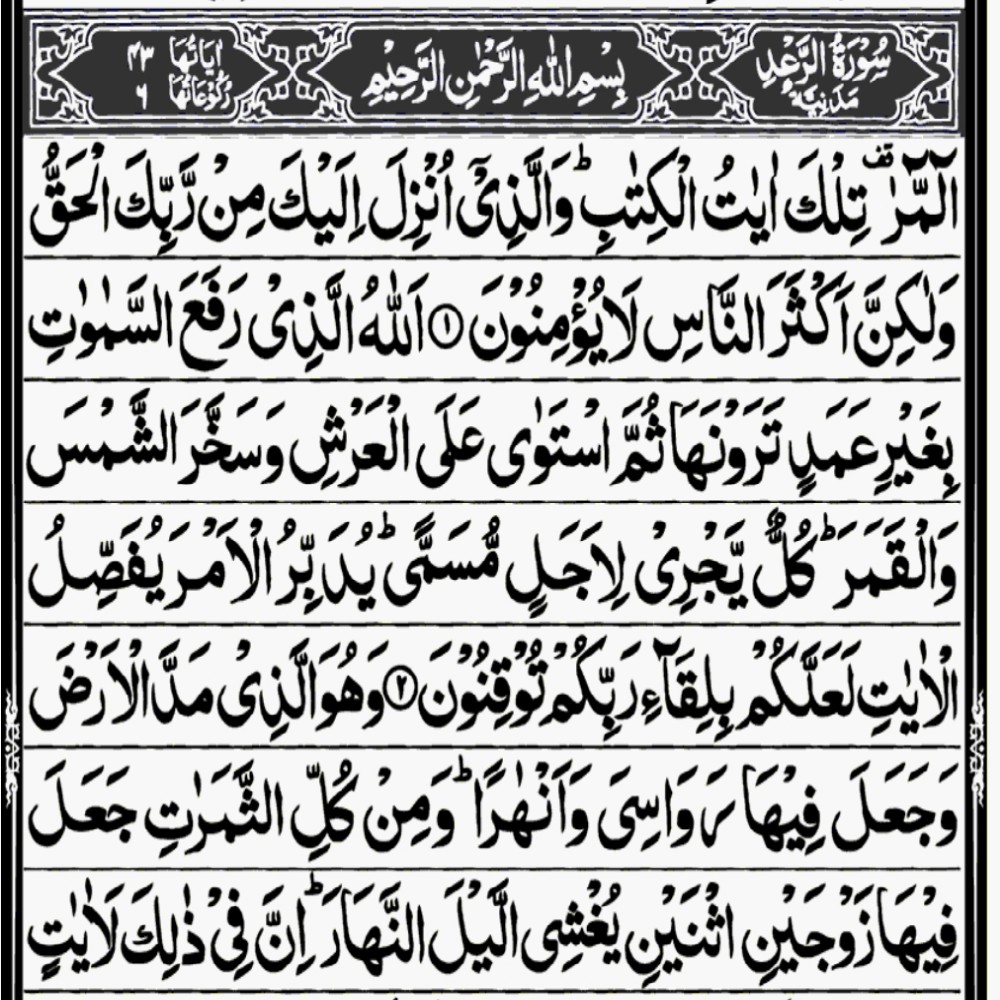 سُوْرَةُ الرَّعْدِ مَدَنِيَّةٌ بِسْمِ اللهِ الرَّحْمٰنِ الرَّحِيْمِ اٰيَاتُهَا ۴۳ رُكُوْعَاتُهَا ۶
الٓمّٓرٰ ࣞ تِلْكَ اٰيٰتُ الْكِتٰبِ ؕ وَالَّذِيْۤ اُنْزِلَ اِلَيْكَ مِنْ رَّبِّكَ الْحَقُّ
وَلٰكِنَّ اَكْثَرَ النَّاسِ لَا يُؤْمِنُوْنَ ۝۱ اَللهُ الَّذِيْ رَفَعَ السَّمٰوٰتِ
بِغَيْرِ عَمَدٍ تَرَوْنَهَا ثُمَّ اسْتَوٰى عَلَى الْعَرْشِ وَسَخَّرَ الشَّمْسَ
وَالْقَمَرَ ؕ كُلٌّ يَّجْرِيْ لِاَجَلٍ مُّسَمًّى ؕ يُدَبِّرُ الْاَمْرَ يُفَصِّلُ
الْاٰيٰتِ لَعَلَّكُمْ بِلِقَآءِ رَبِّكُمْ تُوْقِنُوْنَ ۝۲ وَهُوَ الَّذِيْ مَدَّ الْاَرْضَ
وَجَعَلَ فِيْهَا رَوَاسِيَ وَاَنْهٰرًا ؕ وَمِنْ كُلِّ الثَّمَرٰتِ جَعَلَ
فِيْهَا زَوْجَيْنِ اثْنَيْنِ يُغْشِي الَّيْلَ النَّهَارَ ؕ اِنَّ فِيْ ذٰلِكَ لَاٰيٰتٍ